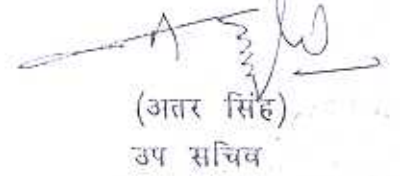 (अतर सिंह)
उप सचिव